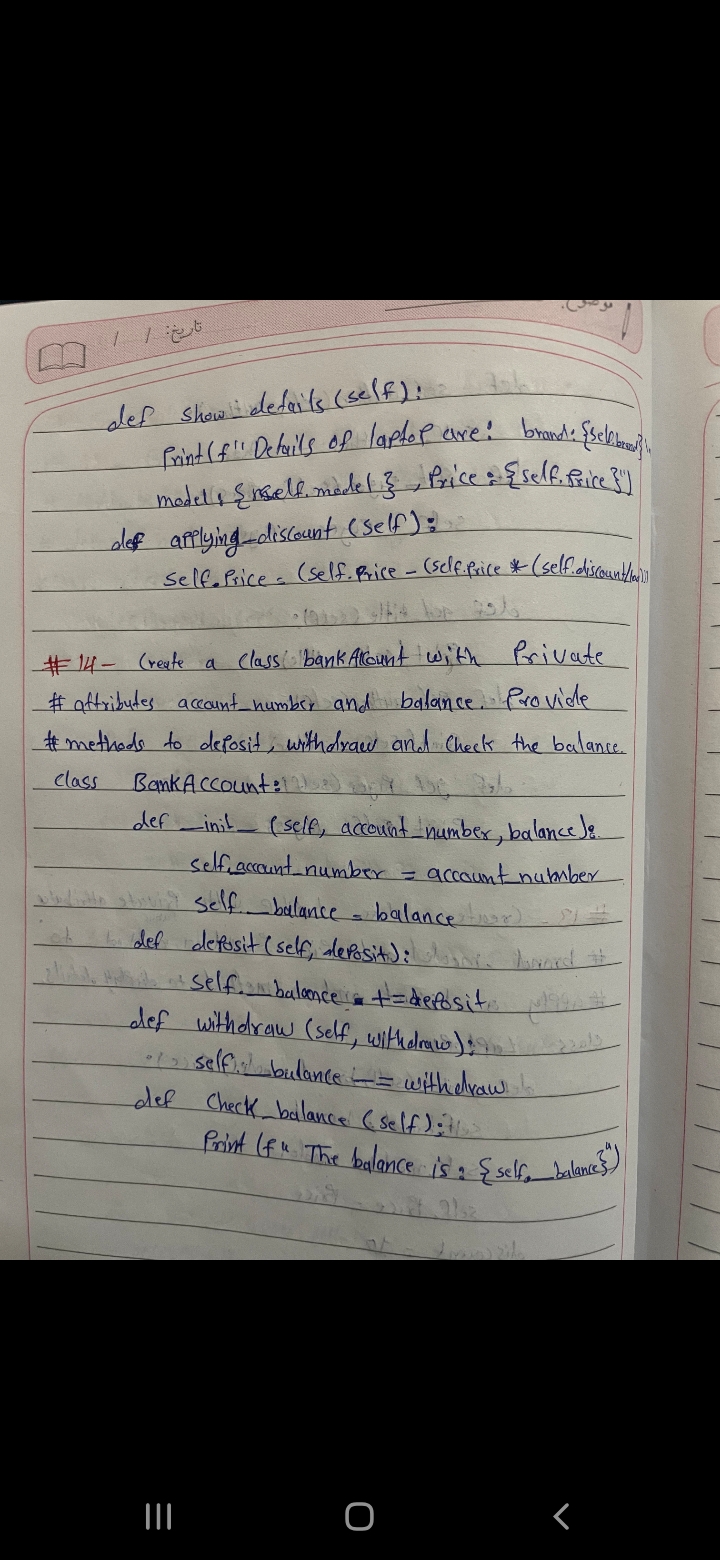 تاریخ: / /
def show_details (self):
Print(f" Details of laptop are: brand: {self.brand},
model: {self.model} , Price: {self.Price}")
def applying_discount (self):
self.Price = (self.Price - (self.Price * (self.discount/100)))
# 14- Create a class bankAccount with Private
# attributes account_number and balance. Provide
# methods to deposit, withdraw and Check the balance.
class BankAccount:
def __init__ (self, account_number, balance):
self.account_number = account_number
self.__balance = balance
def deposit (self, deposit):
self.__balance += deposit
def withdraw (self, withdraw):
self.__balance -= withdraw
def Check_balance (self):
Print (f" The balance is: {self.__balance}")